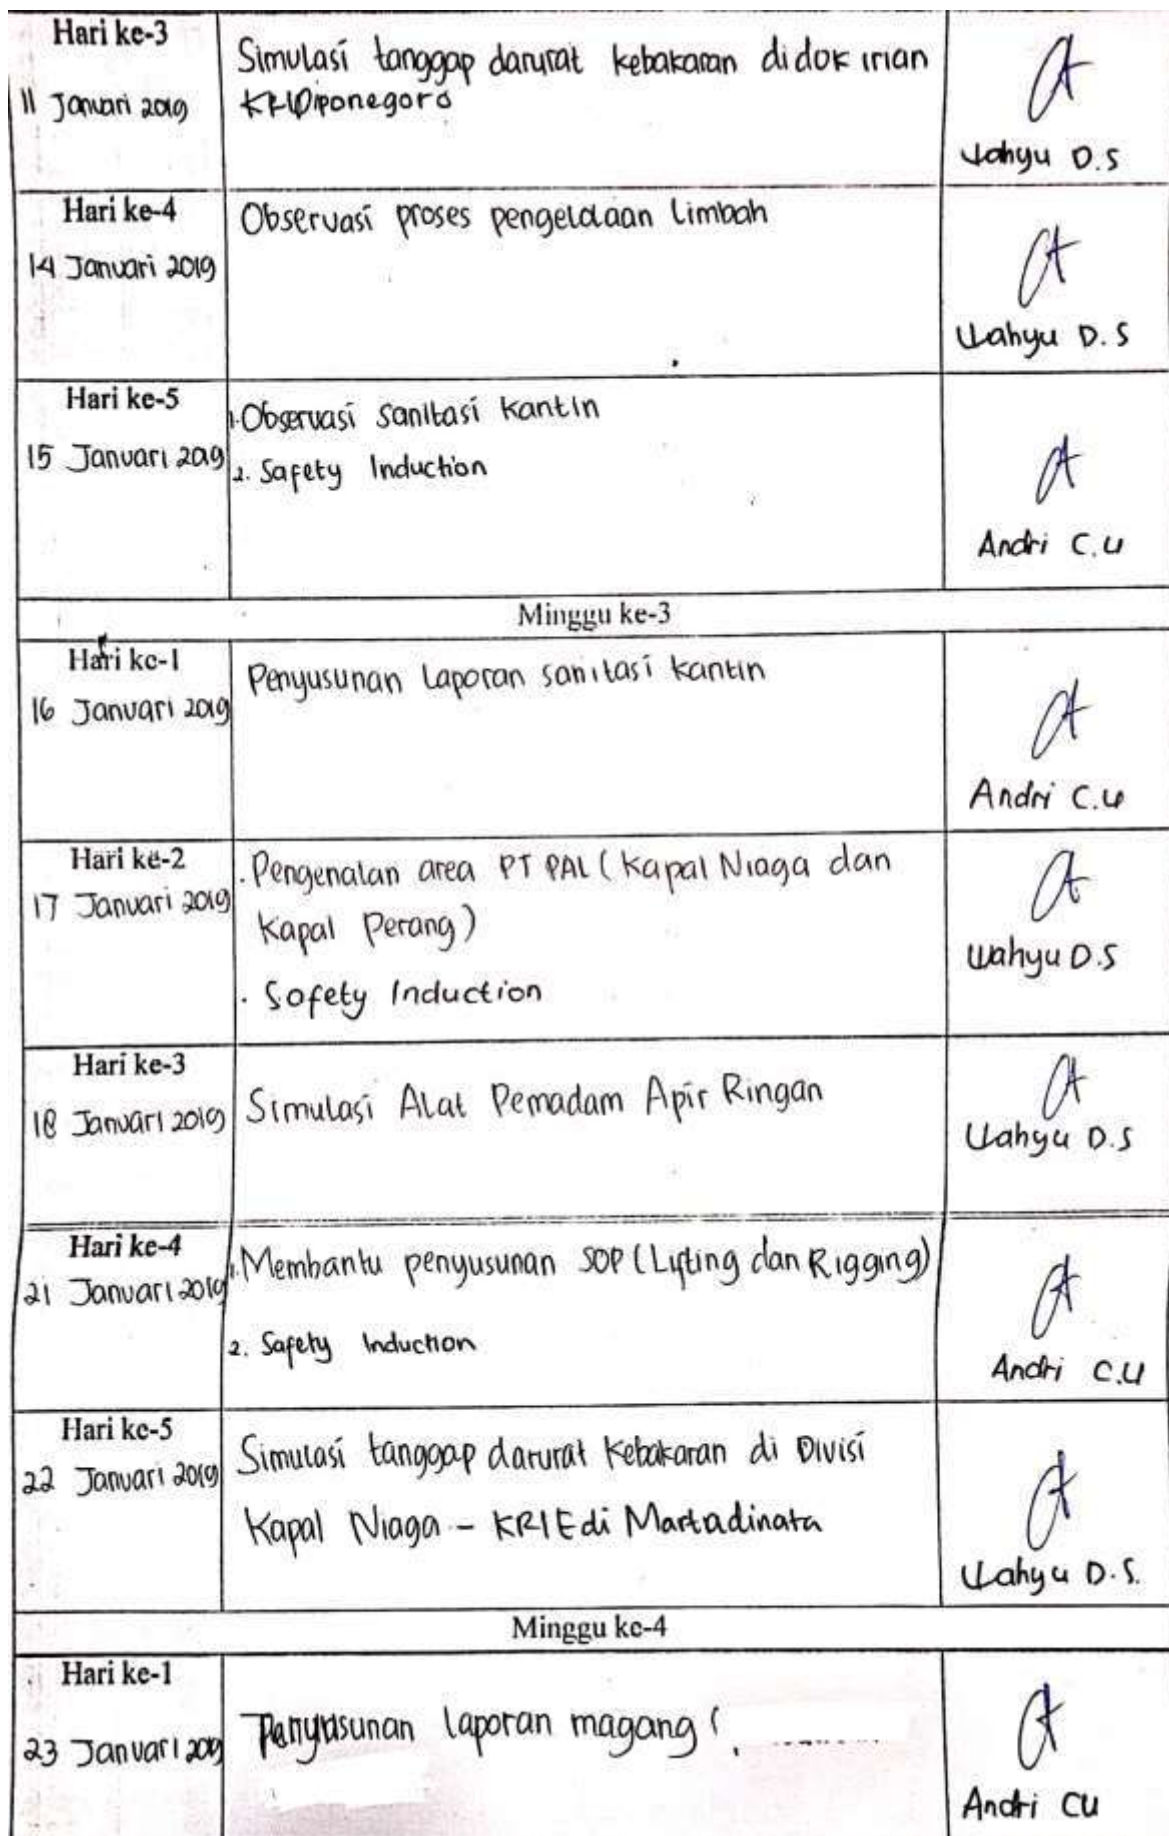 Hari ke-3
11 Januari 2019
Simulasi tanggap darurat kebakaran didok irian
KRI Diponegoro
Wahyu D.S
Hari ke-4
14 Januari 2019
Observasi proses pengelolaan Limbah
Wahyu D.S
Hari ke-5
15 Januari 2019
1. Observasi Sanitasi Kantin
2. Safety Induction
Andri C.U
Minggu ke-3
Hari ke-1
16 Januari 2019
Penyusunan Laporan sanitasi kantin
Andri C.U
Hari ke-2
17 Januari 2019
. Pengenalan area PT PAL (Kapal Niaga dan
Kapal Perang)
. Safety Induction
Wahyu D.S
Hari ke-3
18 Januari 2019
Simulasi Alat Pemadam Apir Ringan
Wahyu D.S
Hari ke-4
21 Januari 2019
1. Membantu penyusunan SOP (Lifting dan Rigging)
2. Safety Induction
Andri C.U
Hari ke-5
22 Januari 2019
Simulasi tanggap darurat Kebakaran di Divisi
Kapal Niaga - KRI Edi Martadinata
Wahyu D.S.
Minggu ke-4
Hari ke-1
23 Januari 2019
Penyusunan laporan magang (
Andri CU